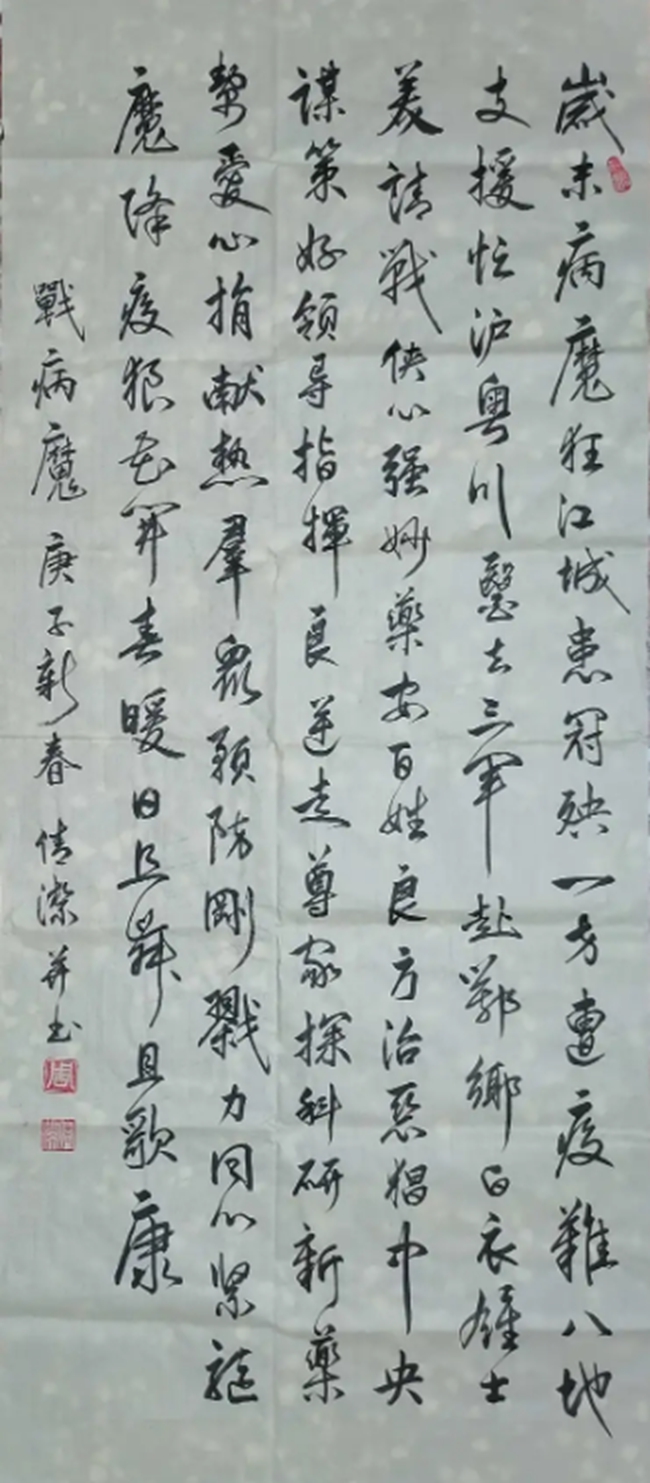 歲末病魔狂江城患冠殃一方遭疫難八地
支援忙沪粤川醫去三軍赴鄂鄉白衣鍾士
美請戰俠心强妙藥安百姓良方治惡猖中央
謀策好領导指揮良逆走尊家探科研新藥
幇愛心捐献热羣眾預防剛戮力同心緊驅
魔降疫狼花開春暖日且舞且歌康
戰病魔 庚子新春 倩潔并书